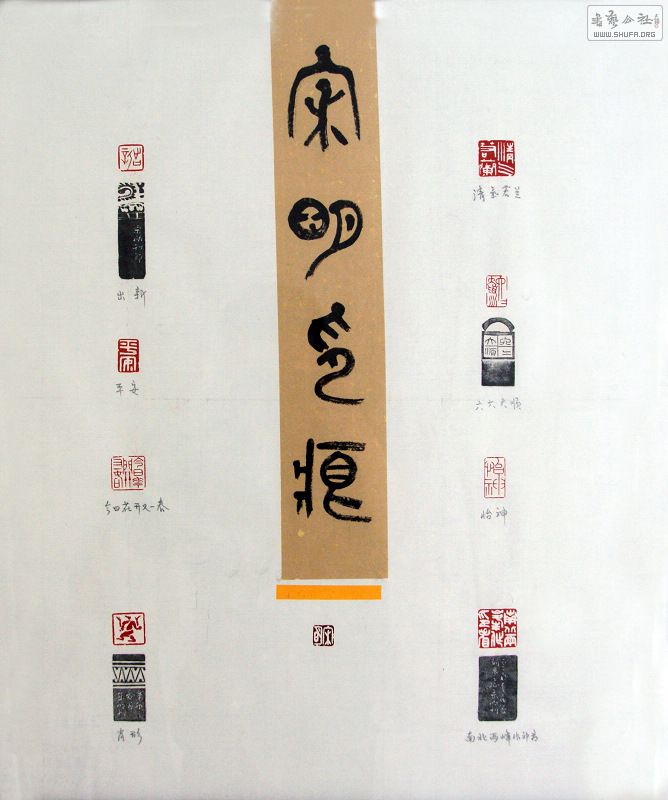 书艺公社
WWW.SHUFA.ORG
宋明印痕
出新
平安
今日花开又一春
肖形
清气若兰
六六大顺
怡神
南北两峰作印看